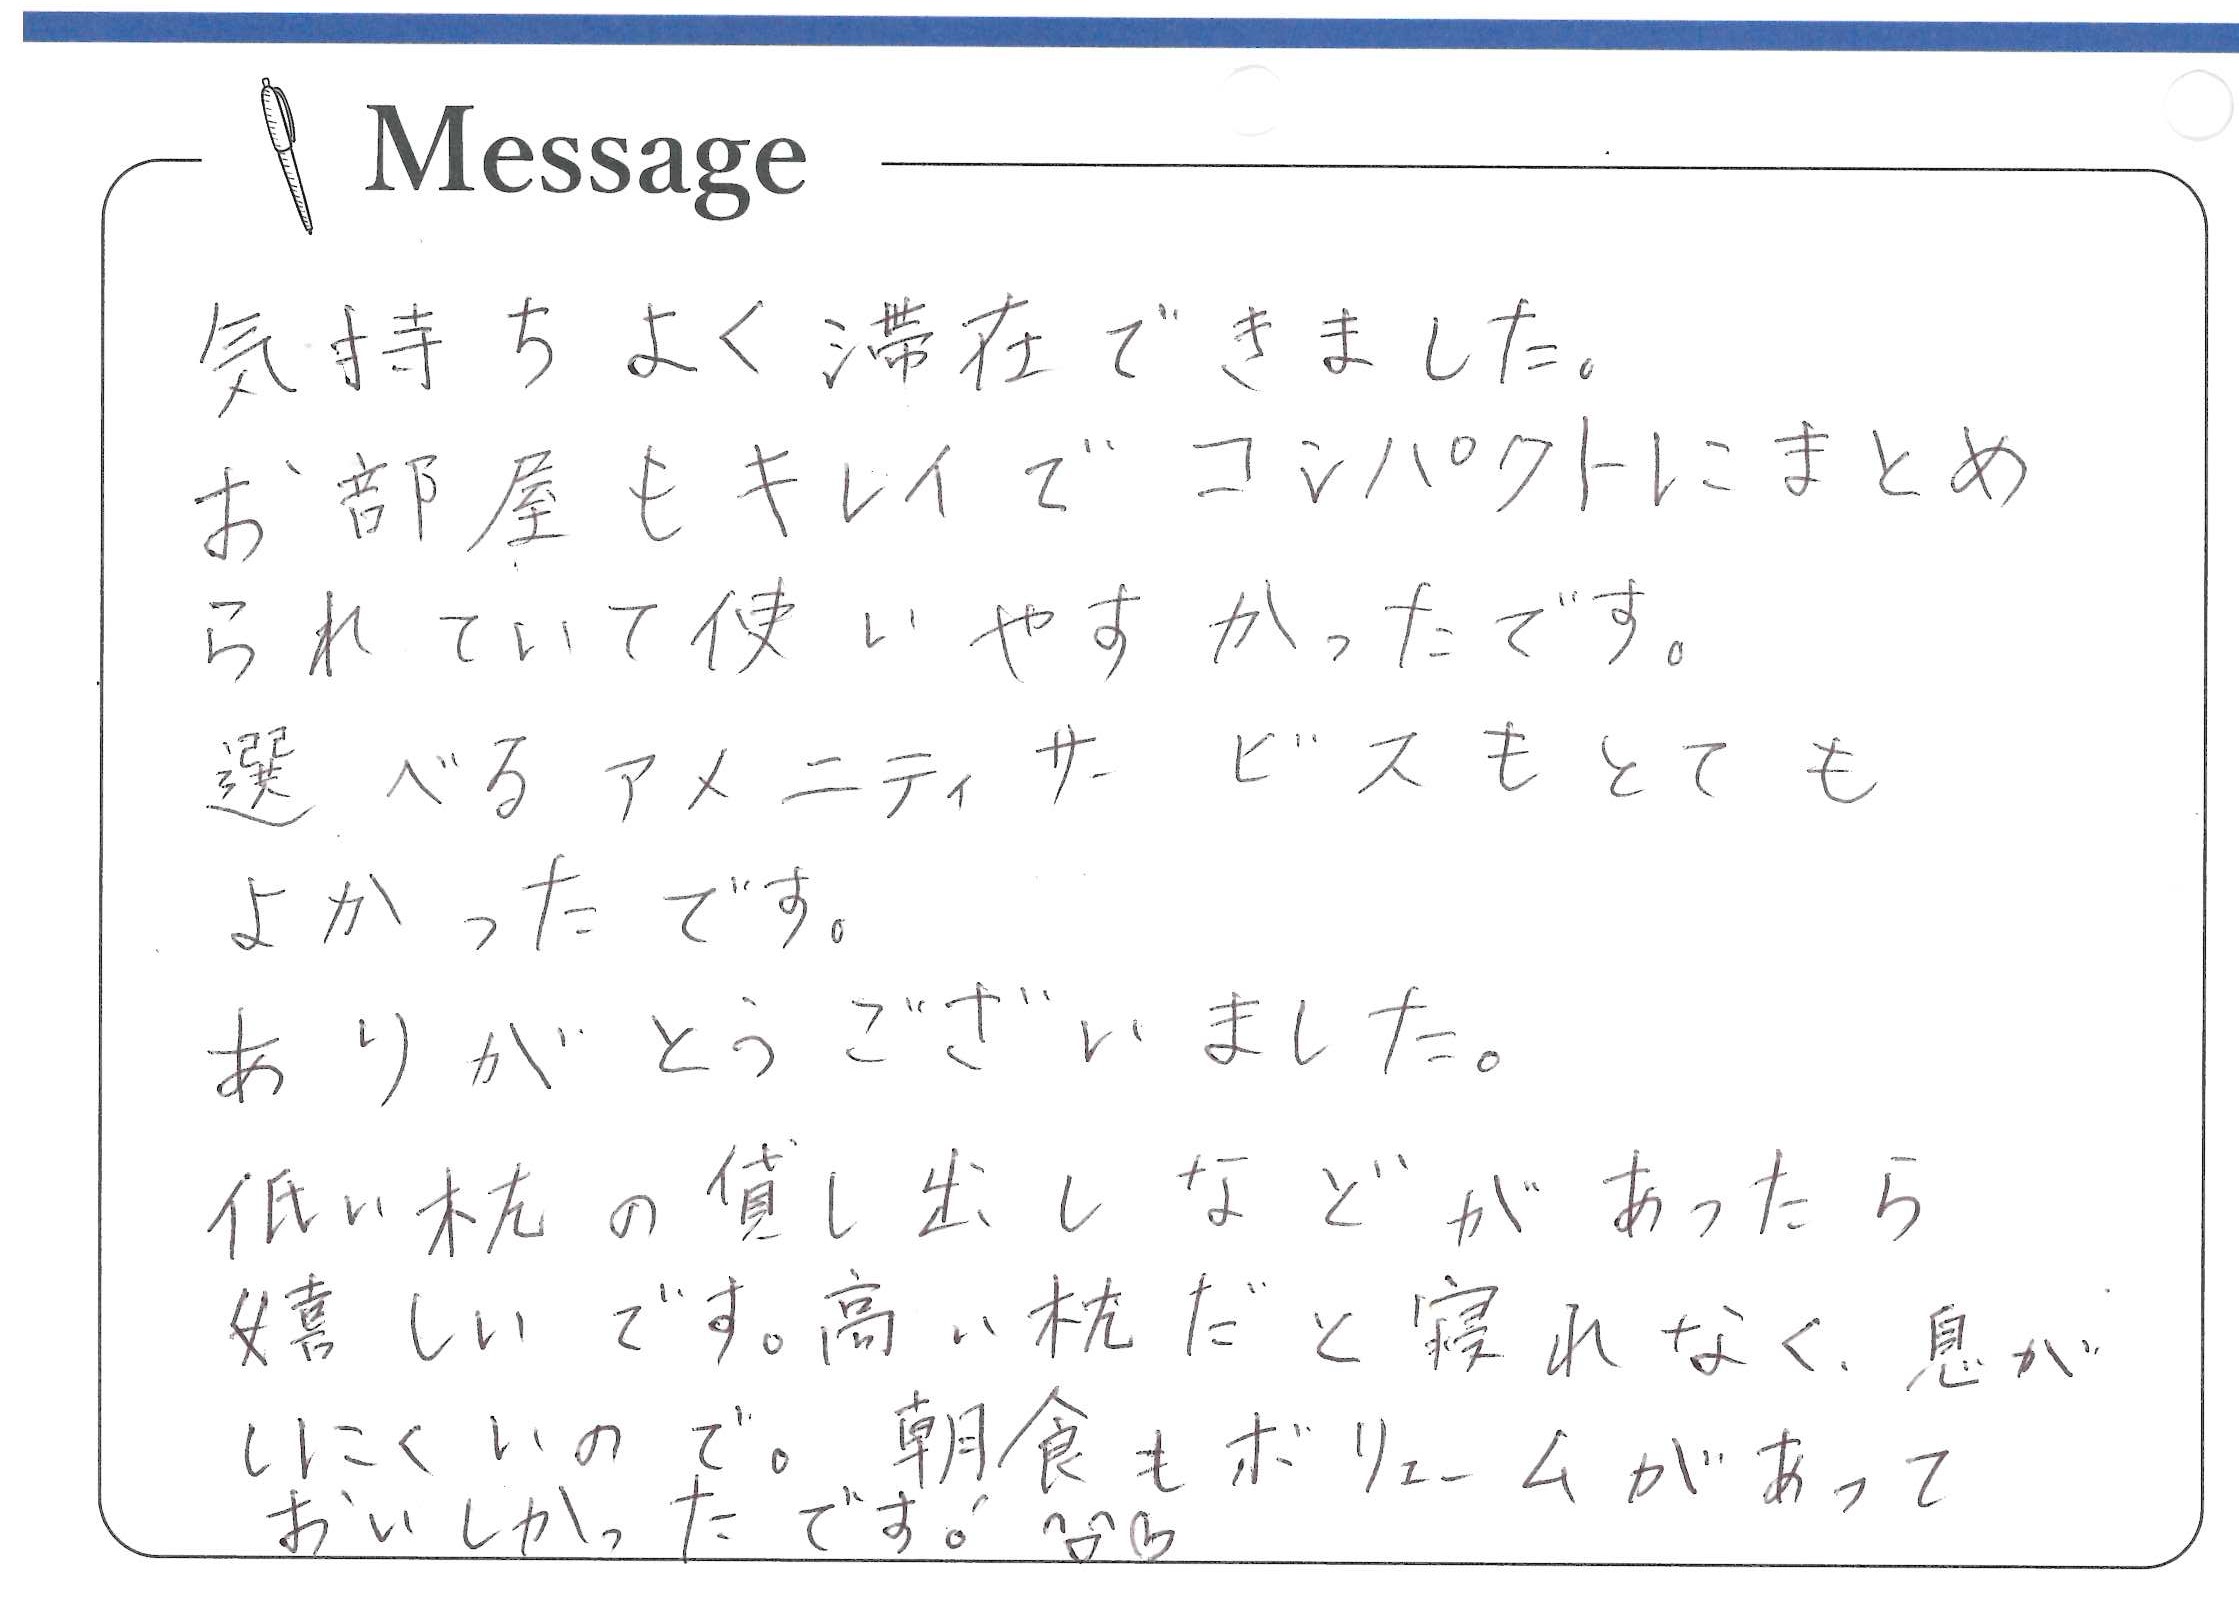 Message
気持ちよく滞在できました。
お部屋もキレイでコンパクトにまとめ
られていて使いやすかったです。
選べるアメニティサービスもとても
よかったです。
ありがとうございました。
低い枕の貸し出しなどがあったら
嬉しいです。高い枕だと寝れなく、息が
しにくいので。朝食もボリュームがあって
おいしかったです!